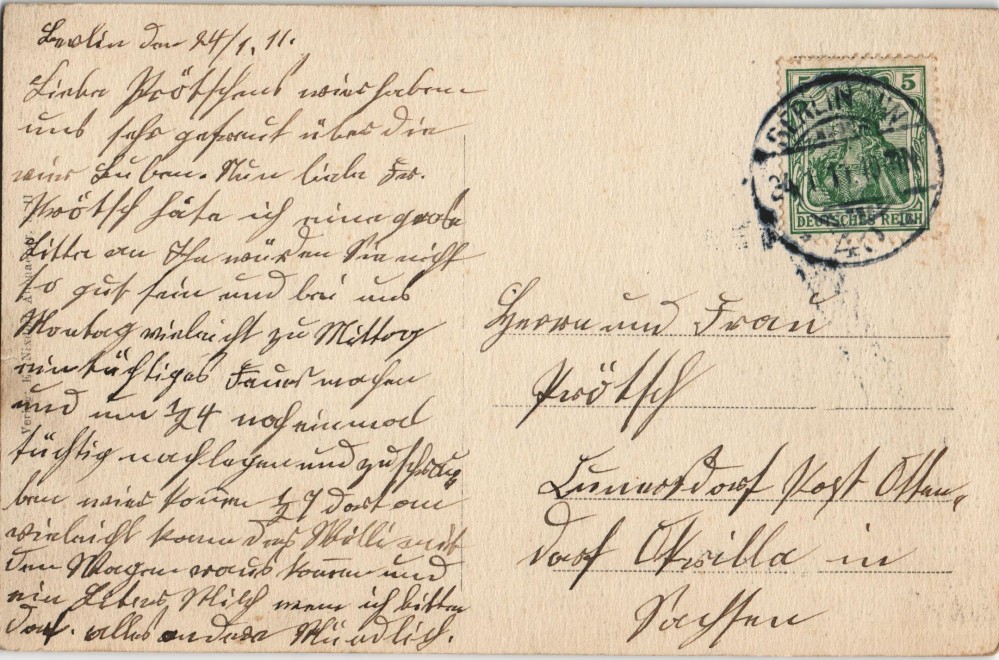 Berlin den 24/1. 11.
Liebe Prötschens wier haben
uns sehr gefreut über die
vier Buben. Nun liebe Fr.
Prötsch häte ich eine große
Bitte an Ihn würden Sie nicht
so gut sein und bei uns
Montag vieleicht zu Mittag
ein tüchtiges Feuer machen
und um 1/24 noch einmal
tüchtig nachlegen und zuschrau„
ben wier komen 1/27 dort an
vieleicht kann der Willi mit
den Wagen raus komen und
ein Liter Milch wenn ich bitten
darf. alles andere Mündlich.
DEUTSCHES REICH
5
BERLIN
Herrn und Frau
Prötsch
Cunersdorf Post Otten„
dorf Okrilla in
Sachsen